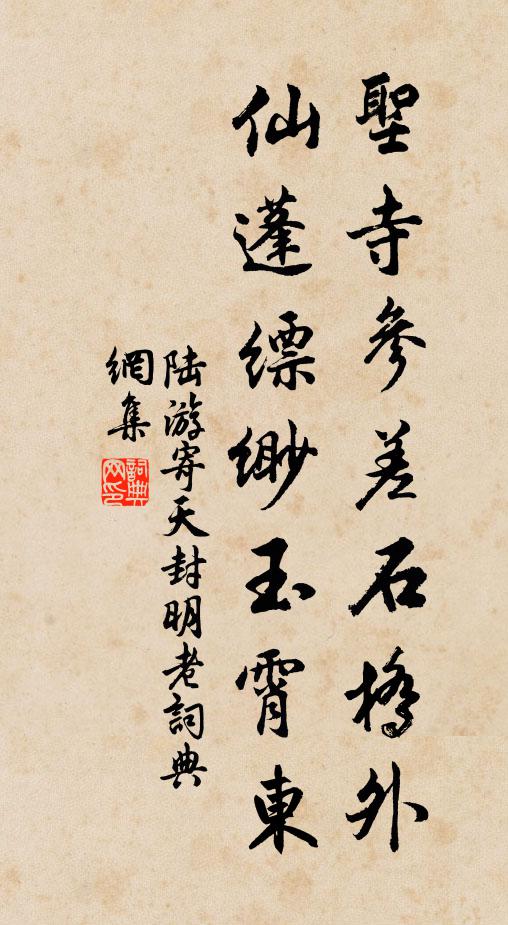 聖寺參差石橋外
仙蓬縹緲玉霄東
陸游寄天封明老詞典
網集
詞典網印